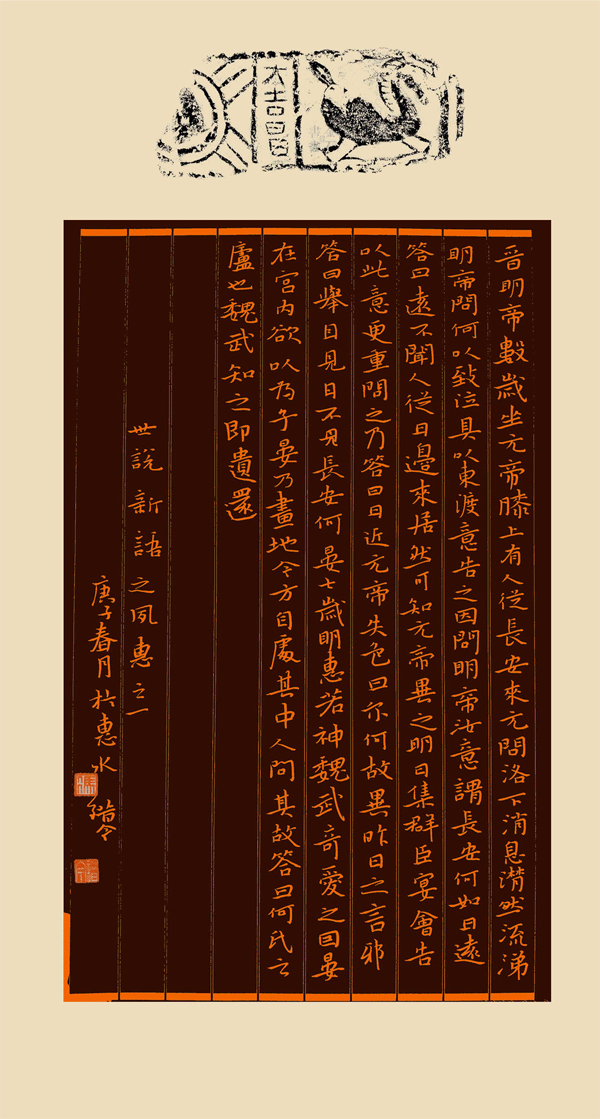 大吉
晋明帝數歲坐元帝膝上有人從長安來元問洛下消息潸然流涕
明帝問何以致泣具以東渡意告之因問明帝汝意謂長安何如日遠
答曰遠不聞人從日邊來居然可知元帝異之明日集群臣宴會告
以此意更重問之乃答曰日近元帝失色曰尔何故異昨日之言邪
答曰舉目見日不見長安何晏七歲明惠若神魏武奇愛之因晏
在宮内欲以為子晏乃畫地令方自處其中人問其故答曰何氏之
廬也魏武知之即遺還
世說新語之夙惠之一
庚子春月於惠水